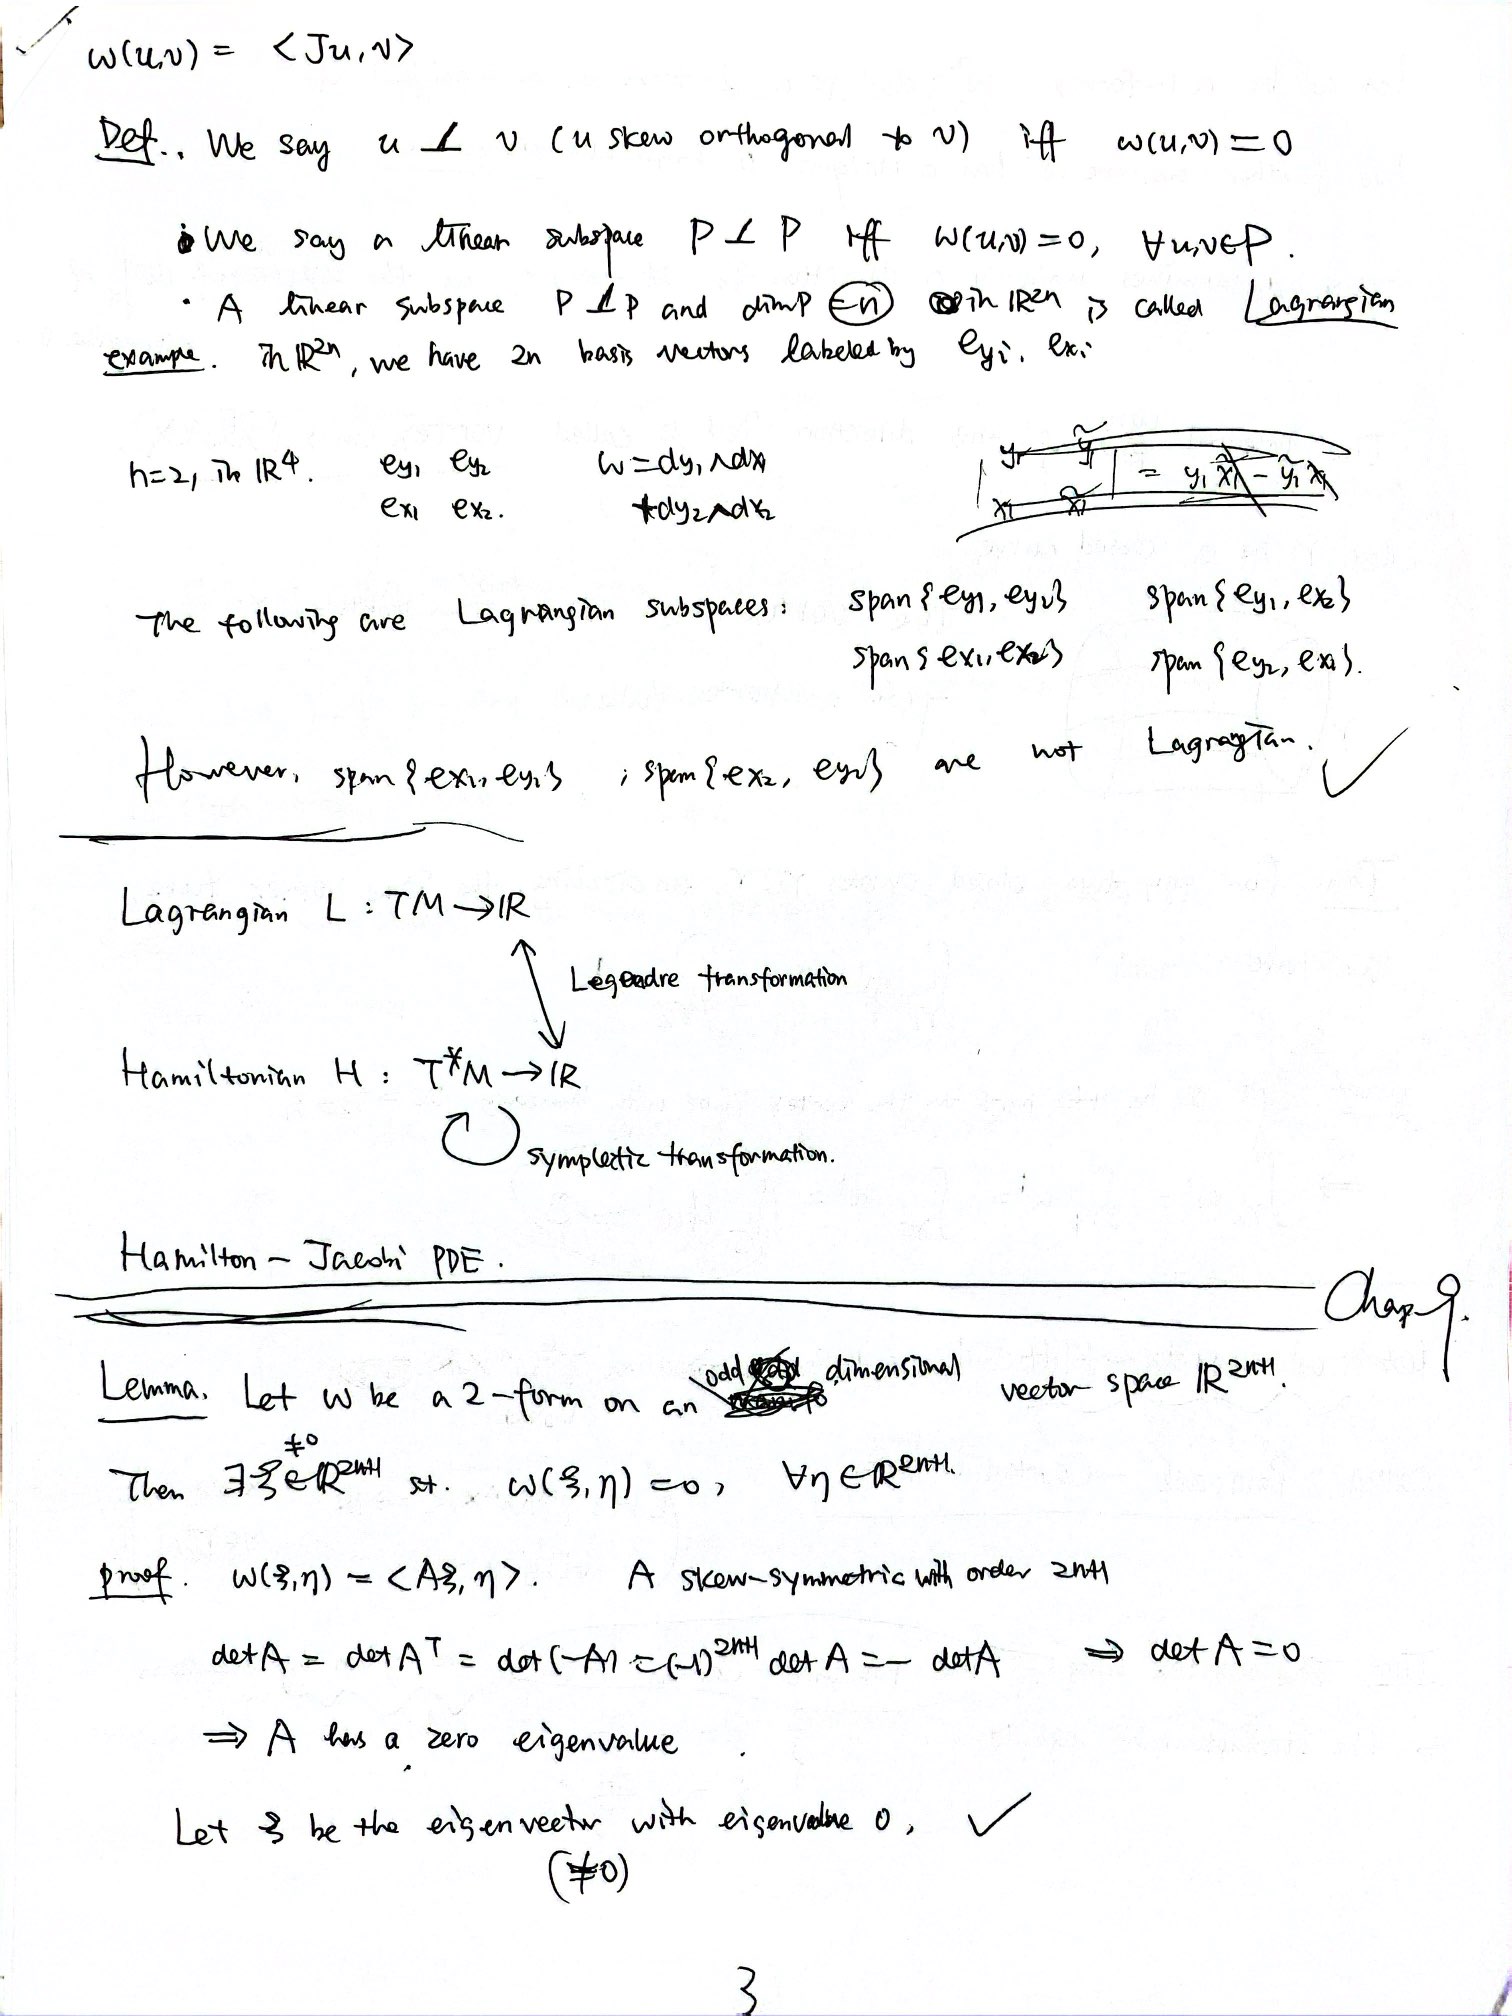 ω(u,v) = <Ju, v>
Def.. We say u ⊥ v (u skew orthogonal to v) iff ω(u,v)=0
We say a linear subspace P⊥P iff ω(u,v)=0, ∀u,v∈P.
· A linear subspace P⊥P and dimP =n in ℝ²ⁿ is called Lagrangian
example. In ℝ²ⁿ, we have 2n basis vectors labeled by e_{yi}, e_{xi}
n=2, in ℝ⁴. e_{y1} e_{y2} ω=dy₁∧dx₁
e_{x1} e_{x2}. +dy₂∧dx₂
| y₁ ỹ₁ | = y₁x̃₁ - ỹ₁x₁
x₁ x̃₁
The following are Lagrangian subspaces: span{e_{y1}, e_{y2}} span{e_{y1}, e_{x2}}
span{e_{x1}, e_{x2}} span{e_{y2}, e_{x1}}.
However, span{e_{x1}, e_{y1}} ; span{e_{x2}, e_{y2}} are not Lagragian. ✓
Lagrangian L : TM→ℝ
Legendre transformation
Hamiltonian H : T*M→ℝ
symplectic transformation.
Hamilton - Jacobi PDE.
Chap 9.
Lemma. Let ω be a 2-form on an odd dimensional vector space ℝ²ⁿ⁺¹.
Then ∃ξ∈ℝ²ⁿ⁺¹ ≠0 st. ω(ξ,η)=0, ∀η∈ℝ²ⁿ⁺¹.
proof. ω(ξ,η) = <Aξ,η>. A skew-symmetric with order 2n+1
detA = detAᵀ = det(-A) = (-1)²ⁿ⁺¹ detA = - detA ⇒ detA=0
⇒ A has a zero eigenvalue.
Let ξ be the eigenvector with eigenvalue 0, ✓
(≠0)
3